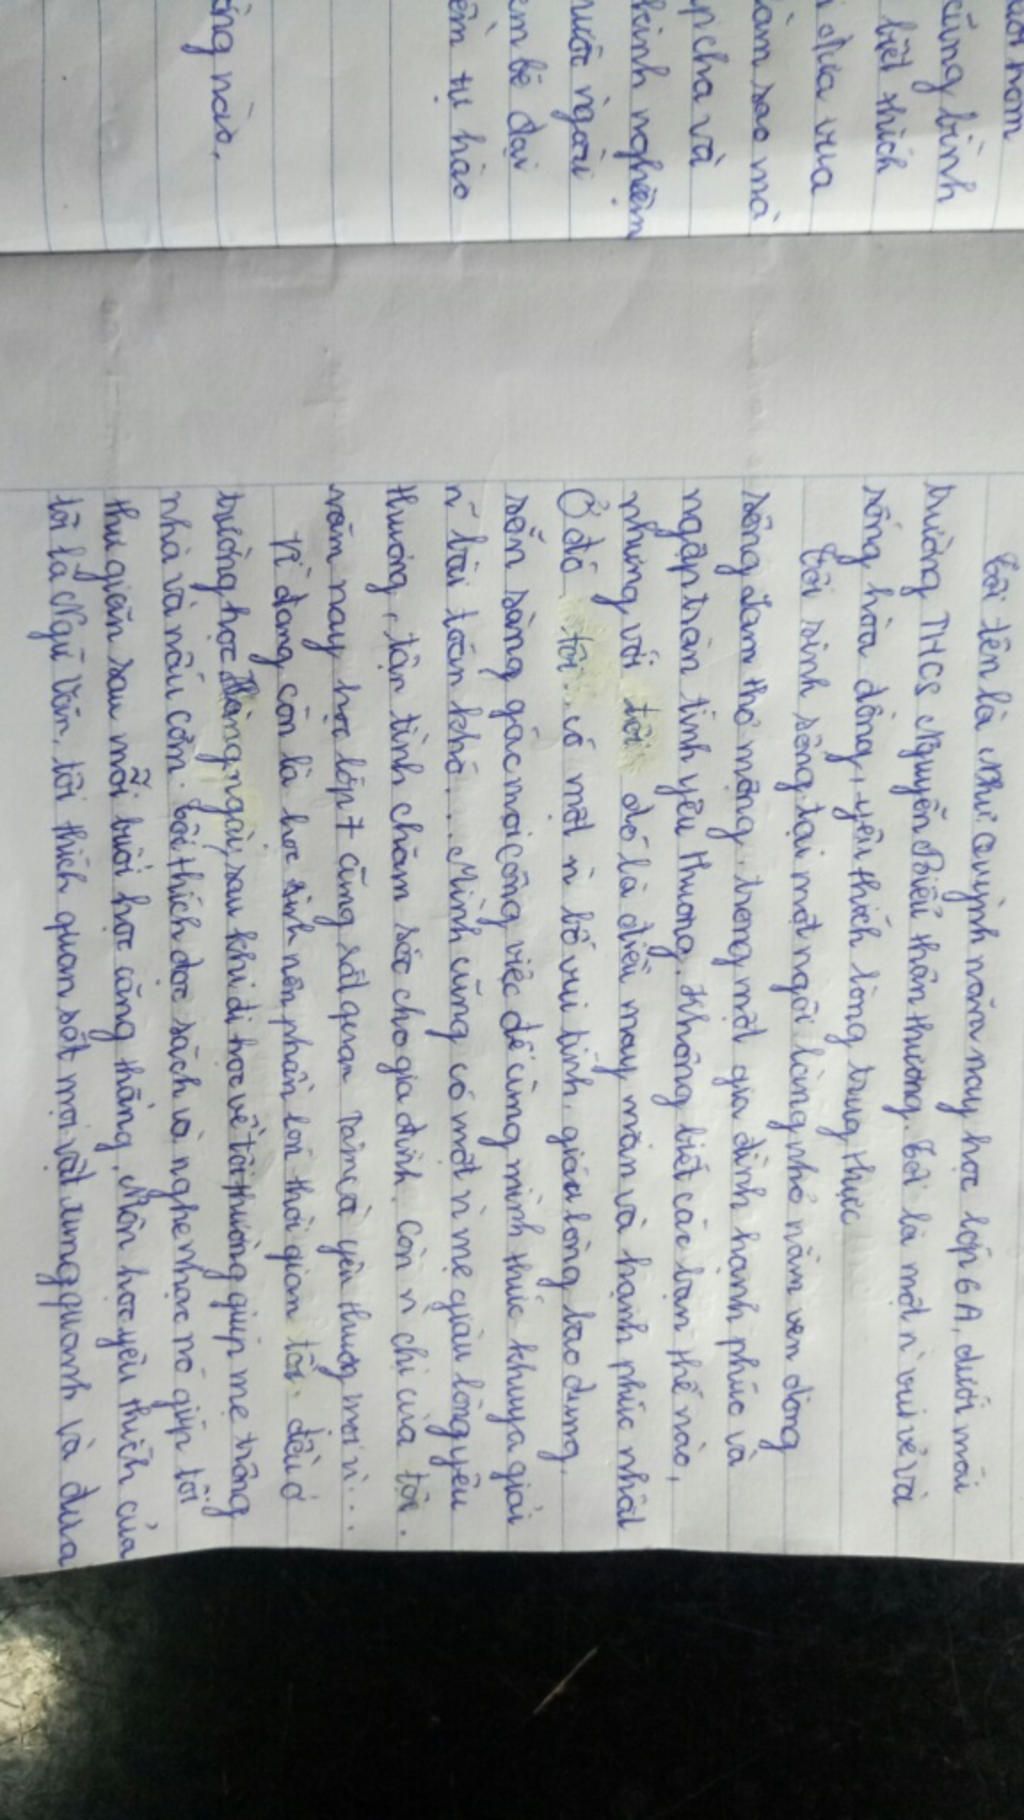 ười hơm
cũng bình
biết thích
đùa vừa
làm sao mà
p cha và
kinh nghiệm
nước ngoài
em bé đại
ên tự hào
áng nào,
Tôi tên là Như Quỳnh năm nay học lớp 6A, dưới mái
trường THCS Nguyễn Biểu thân thương. Tôi là một n` vui vẻ và
sống hòa đồng, yêu thích lòng trung thực
Tôi sinh sống tại một ngôi làng nhỏ nằm ven dòng
sông Lam thơ mộng. trong một gia đình hạnh phúc và
ngập tràn tình yêu thương. Không biết các bạn thế nào,
nhưng với tôi đó là điều may mắn và hạnh phúc nhất
Ở đó tôi có một n` bố vui tính, giàu lòng bao dung,
sẵn sàng gác mọi công việc để cùng mình thức khuya giải
n~ bài toán khó... Mình cũng có một n` mẹ giàu lòng yêu
thương, tận tình chăm sóc cho gia đình. Còn n` chị của tôi.
năm nay học lớp 7 cũng rất quan tâm và yêu thương mọi n`...
Vì đang còn là học sinh nên phần lớn thời gian tôi đều ở
trường học. Hàng ngày, sau khi đi học về tôi thường giúp mẹ trông
nhà và nấu cơm. Tôi thích đọc sách và nghe nhạc nó giúp tôi
thư giãn sau mỗi buổi học căng thẳng. Môn học yêu thích của
tôi là Ngữ Văn, tôi thích quan sát mọi vật xung quanh và đưa